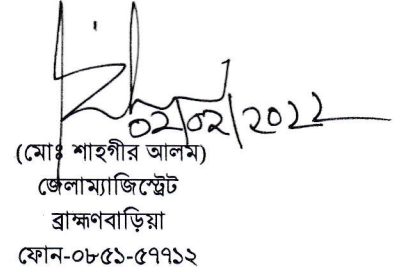 ০২/০২/২০২২
(মোঃ শাহগীর আলম)
জেলাম্যাজিস্ট্রেট
ব্রাহ্মণবাড়িয়া
ফোন-০৮৫১-৫৭৭১২